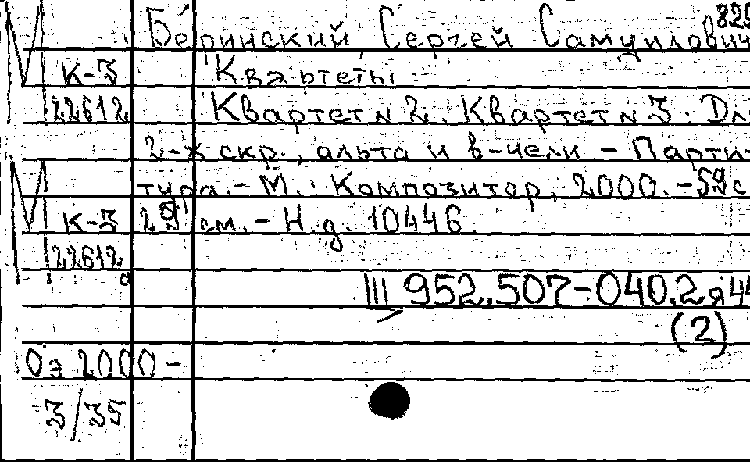 829
Беринский, Сергей Самуилович
К-3 Квартеты
22612 Квартет N 2. Квартет N 3. Дл
2-х скр., альта и в-чели - Парти-
тура. - М.: Композитор, 2000. - 59 с
К-3 29 см. - Н.д. 10446.
22612
а
Ш 952.507-040.2я44
(2)
Оэ 2000 -
3/35